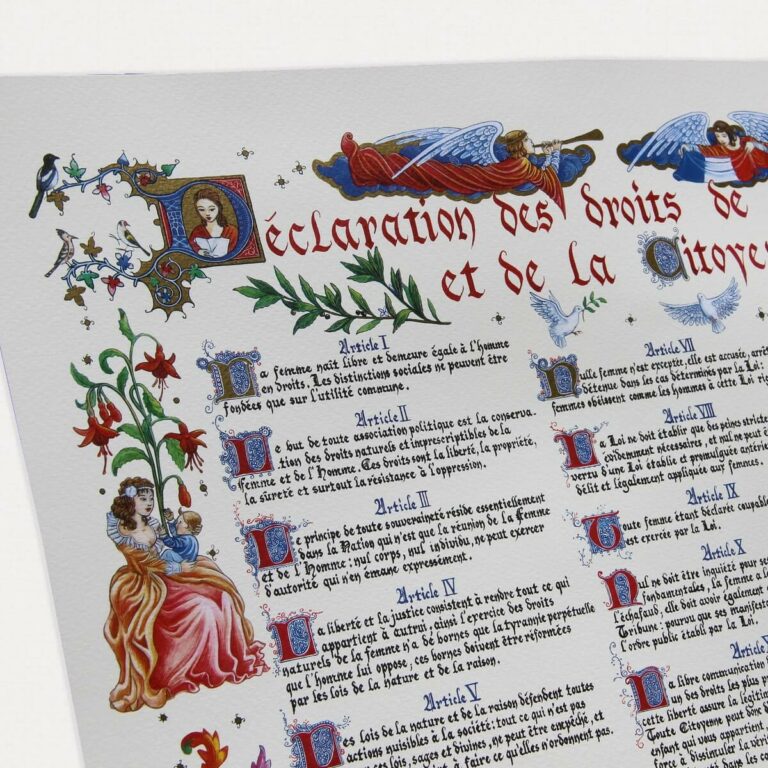 Déclaration des droits de
et de la Citoyen
Article I
La femme naît libre et demeure égale à l'homme
en droits. Les distinctions sociales ne peuvent être
fondées que sur l'utilité commune.
Article II
Le but de toute association politique est la conserva-
tion des droits naturels et imprescriptibles de la
Femme et de l'Homme. Ces droits sont la liberté, la propriété,
la sûreté et surtout la résistance à l'oppression.
Article III
Le principe de toute souveraineté réside essentiellement
dans la Nation qui n'est que la réunion de la Femme
et de l'Homme: nul corps, nul individu, ne peut exercer
d'autorité qui n'en émane expressément.
Article IV
La liberté et la justice consistent à rendre tout ce qui
appartient à autrui, ainsi l'exercice des droits
naturels de la femme n'a de bornes que la tyrannie perpétuelle
que l'homme lui oppose; ces bornes doivent être réformées
par les lois de la nature et de la raison.
Article V
Les lois de la nature et de la raison défendent toutes
actions nuisibles à la société: tout ce qui n'est pas
ces lois, sages et divines, ne peut être empêché, et
à faire ce qu'elles n'ordonnent pas.
Article VII
Nulle femme n'est exceptée, elle est accusée, arrêt
détenue dans les cas déterminés par la Loi:
femmes obéissent comme les hommes à cette Loi rig
Article VIII
La Loi ne doit établir que des peines stricte
évidemment nécessaires, et nul ne peut ê
vertu d'une Loi établie et promulguée antérieu
délit et légalement appliquée aux femmes.
Article IX
Toute femme étant déclarée coupable
est exercée par la Loi.
Article X
Nul ne doit être inquiété pour se
fondamentales, la femme a le
l'échafaud, elle doit avoir également
Tribune: pourvu que ses manifesta
l'ordre public établi par la Loi.
Article X
La libre communication
un des droits les plus p
cette liberté assure la légitim
Toute Citoyenne peut donc d
enfant qui vous appartient,
force à dissimuler la véri
dans les ca